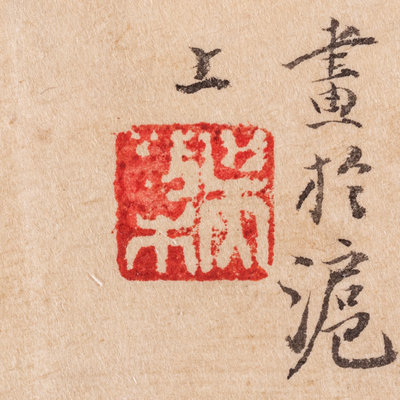 畫於滬
上